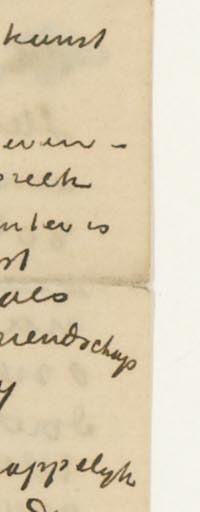 kunst
even-
reek
nter is
st
als
riendschap
y
appelyk